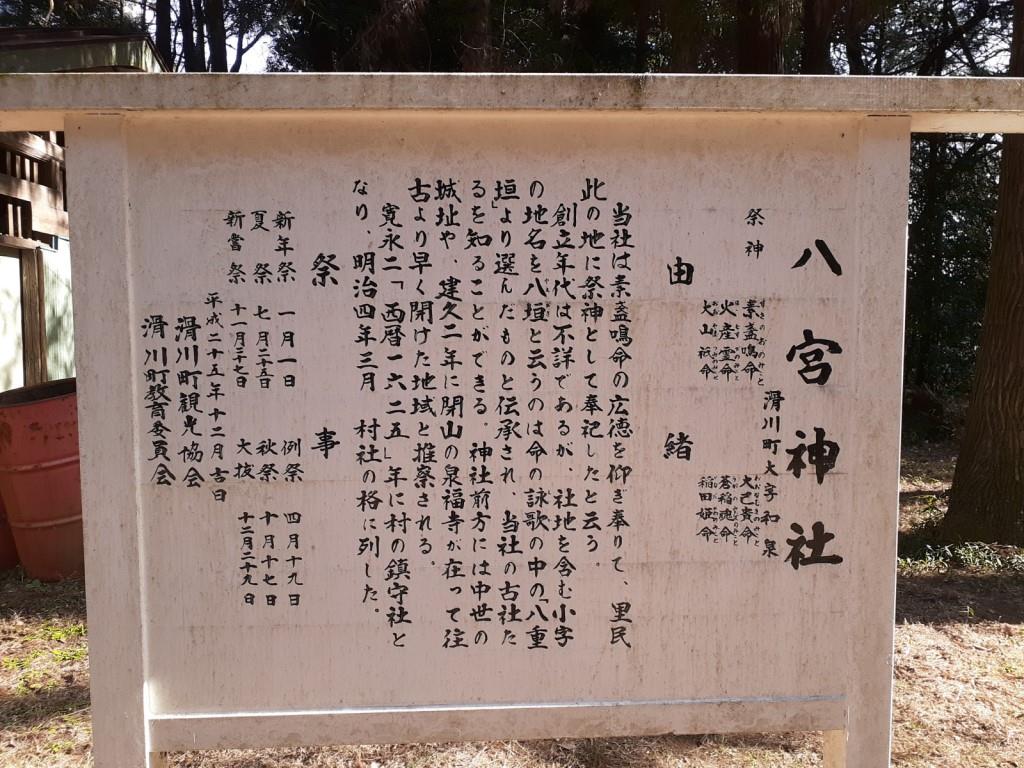 八宮神社
滑川町大字和泉
祭神
素盞鳴命
火産霊命
大山祇命
大己貴命
蒼稲魂命
稲田姫命
由緒
当社は素盞鳴命の広徳を仰ぎ奉りて、里民
此の地に祭神として奉祀したと云う。
創立年代は不詳であるが、社地を含む小字
の地名を八垣と云うのは命の詠歌の中の「八重
垣」より選んだものと伝承され、当社の古社た
るを知ることができる。神社前方には中世の
城址や、建久二年に開山の泉福寺が在って往
古より早く開けた地域と推察される。
寛永二「西暦一六二五」年に村の鎮守社と
なり、明治四年三月 村社の格に列した。
祭事
新年祭 一月一日 例祭 四月十九日
夏祭 七月二十五日 秋祭 十月十七日
新嘗祭 十一月二十七日 大祓 十二月二十九日
平成二十五年十二月吉日
滑川町観光協会
滑川町教育委員会